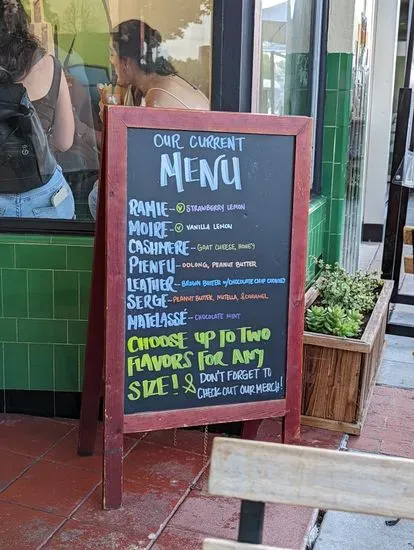 OUR CURRENT
MENU
RAMIE - V STRAWBERRY LEMON
MOIRE - V VANILLA LEMON
CASHMERE - GOAT CHEESE, HONEY
PIENFU - OOLONG, PEANUT BUTTER
LEATHER - BROWN BUTTER W/CHOCOLATE CHIP COOKIES
SERGE - PEANUT BUTTER, NUTELLA, & CARAMEL
MATELASSÉ - CHOCOLATE MINT
CHOOSE UP TO TWO
FLAVORS FOR ANY
SIZE! & DON'T FORGET TO
CHECK OUT OUR MERCH!